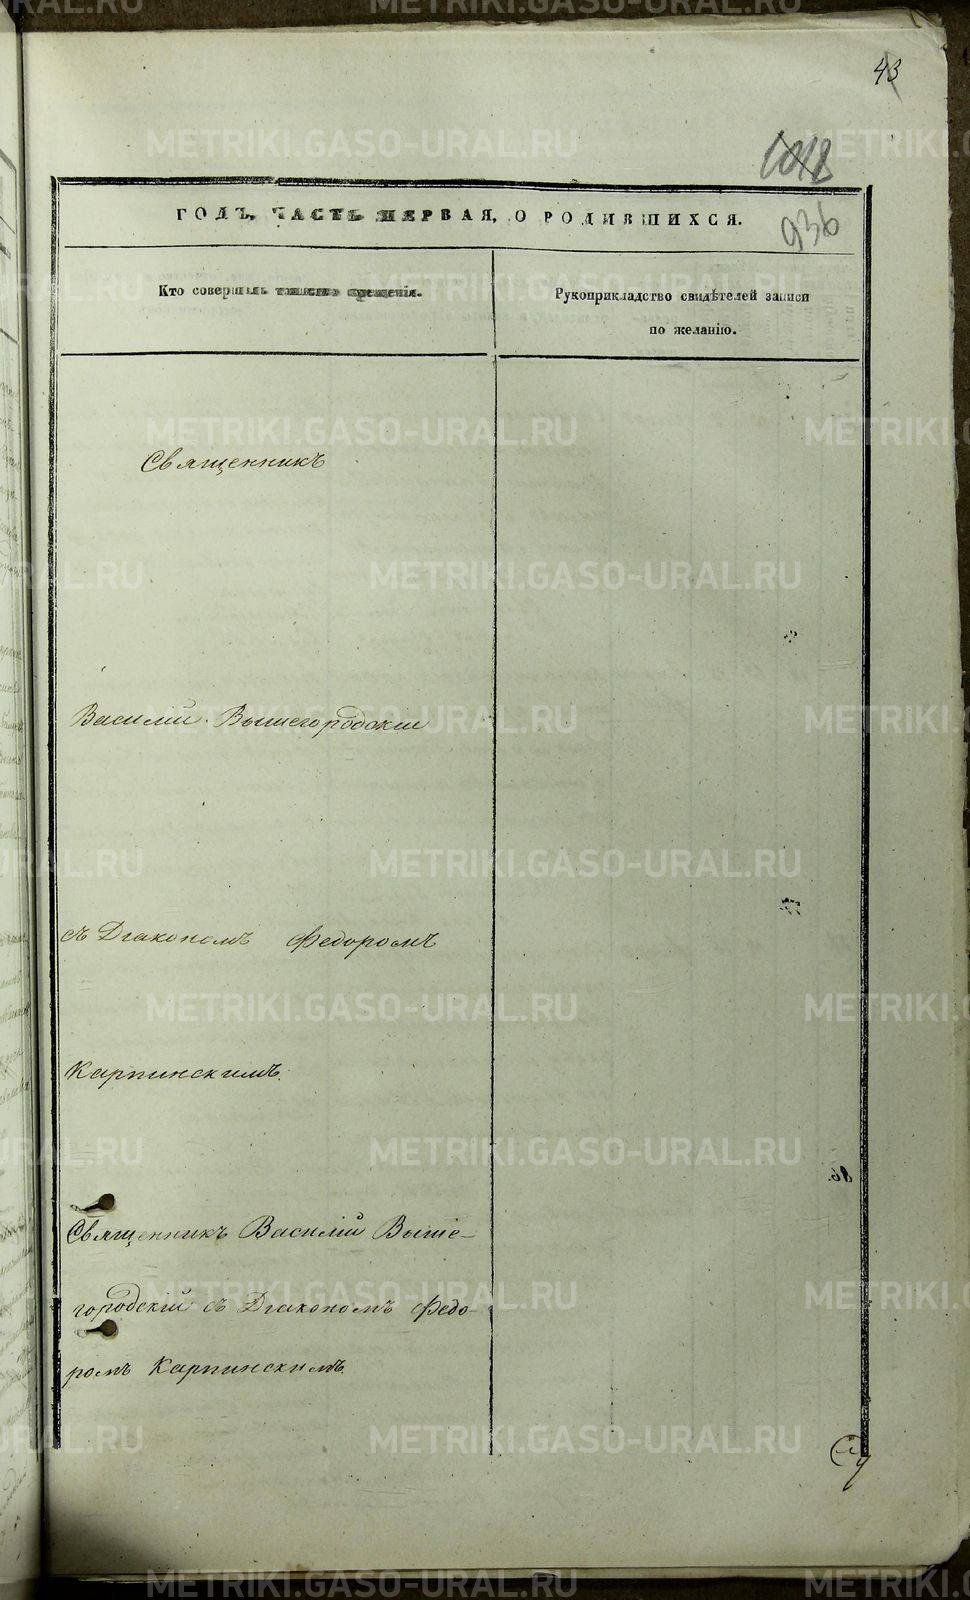 43
936
ГОДЪ, ЧАСТЬ ПЕРВАЯ, О РОДИВШИХСЯ.
Кто совершалъ таинство крещенія.
Рукоприкладство свидѣтелей записи
по желанію.
Священникъ
Василий Вышегородский
съ Диакономъ Федоромъ
Карпинскимъ.
Священникъ Василій Выше-
городскій съ Диакономъ Федо-
ромъ Карпинскимъ.
METRIKI.GASO-URAL.RU